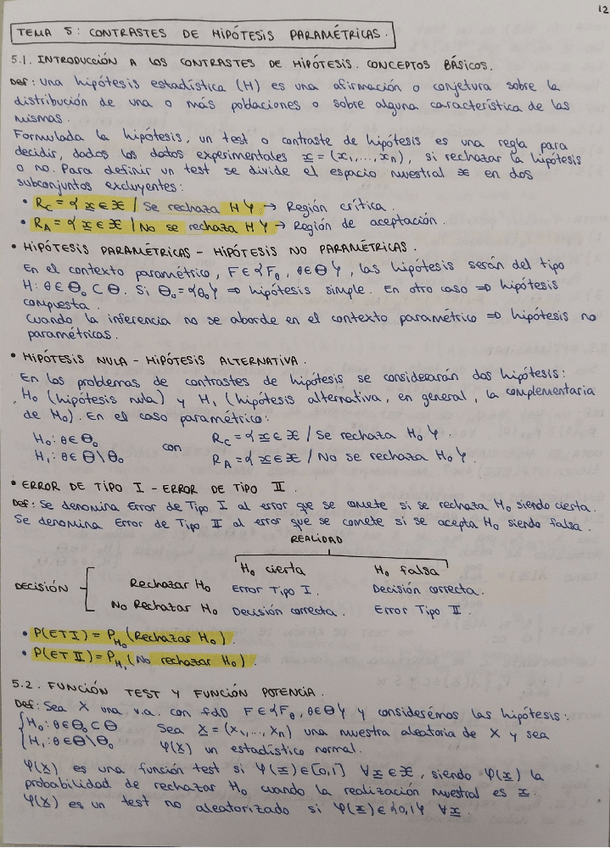 12
TEMA 5: CONTRASTES DE HIPÓTESIS PARAMÉTRICAS.
5.1. INTRODUCCIÓN A LOS CONTRASTES DE HIPÓTESIS. CONCEPTOS BÁSICOS.
Def: Una hipótesis estadística (H) es una afirmación o conjetura sobre la
distribución de una o más poblaciones o sobre alguna característica de las
mismas.
Formulada la hipótesis, un test o contraste de hipótesis es una regla para
decidir, dados los datos experimentales x = (x₁,...,xₙ), si rechazar la hipótesis
o no. Para definir un test se divide el espacio muestral 𝒳 en dos
subconjuntos excluyentes:
• R_C = {x ∈ 𝒳 / Se rechaza H} → Región crítica.
• R_A = {x ∈ 𝒳 / No se rechaza H} → Región de aceptación.
• HIPÓTESIS PARAMÉTRICAS - HIPÓTESIS NO PARAMÉTRICAS.
En el contexto paramétrico, F ∈ {F_θ, θ ∈ Θ}, las hipótesis serán del tipo
H: θ ∈ Θ₀ ⊂ Θ. Si Θ₀ = {θ₀} ⇒ hipótesis simple. En otro caso ⇒ hipótesis
compuesta.
Cuando la inferencia no se aborde en el contexto paramétrico ⇒ hipótesis no
paramétricas.
• HIPÓTESIS NULA - HIPÓTESIS ALTERNATIVA.
En los problemas de contrastes de hipótesis se considerarán dos hipótesis:
H₀ (hipótesis nula) y H₁ (hipótesis alternativa, en general, la complementaria
de H₀). En el caso paramétrico:
H₀: θ ∈ Θ₀ con R_C = {x ∈ 𝒳 / Se rechaza H₀}.
H₁: θ ∈ Θ\Θ₀ R_A = {x ∈ 𝒳 / No se rechaza H₀}.
• ERROR DE TIPO I - ERROR DE TIPO II.
Def: Se denomina Error de Tipo I al error que se comete si se rechaza H₀ siendo cierta.
Se denomina Error de Tipo II al error que se comete si se acepta H₀ siendo falsa.
REALIDAD
H₀ cierta H₀ falsa
DECISIÓN Rechazar H₀ Error Tipo I. Decisión correcta.
No Rechazar H₀ Decisión correcta. Error Tipo II.
• P(ET I) = P_H₀ (Rechazar H₀).
• P(ET II) = P_H₁ (No rechazar H₀).
5.2. FUNCIÓN TEST Y FUNCIÓN POTENCIA.
Def: Sea X una v.a. con fdD F ∈ {F_θ, θ ∈ Θ} y considerémos las hipótesis:
{H₀: θ ∈ Θ₀ ⊂ Θ Sea X = (X₁,..., Xₙ) una muestra aleatoria de X y sea
{H₁: θ ∈ Θ\Θ₀ φ(X) un estadístico normal.
φ(X) es una función test si φ(x) ∈ [0,1] ∀x ∈ 𝒳, siendo φ(x) la
probabilidad de rechazar H₀ cuando la realización muestral es x.
φ(X) es un test no aleatorizado si φ(x) ∈ {0,1} ∀x.